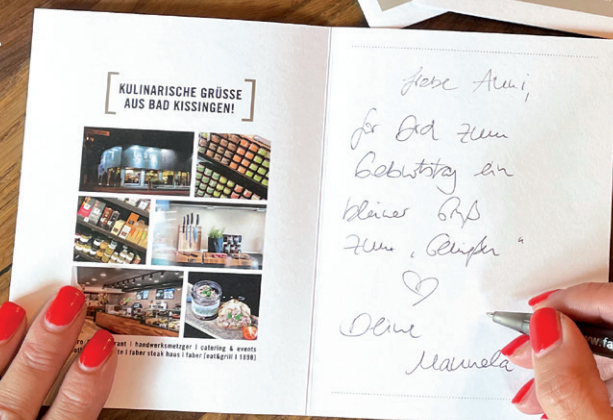 KULINARISCHE GRÜSSE
AUS BAD KISSINGEN!
rant | handwerksmetzger | catering & events
faber steak haus | faber [eat&grill | 1898]
Liebe Anni,
für Dich zum
Geburtstag ein
kleiner Gruß
zum „Genießen“
Deine
Manuela